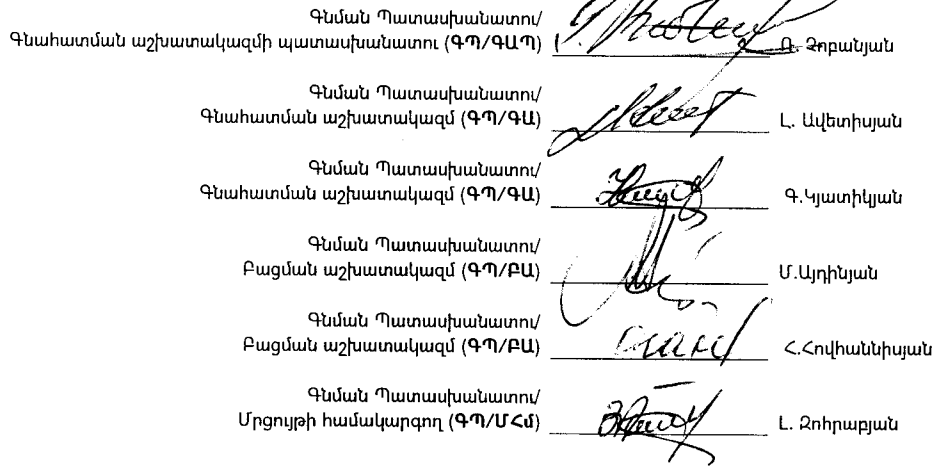 Գնման Պատասխանատու/
Գնահատման աշխատակազմի պատասխանատու (ԳՊ/ԳԱՊ) Չոբանյան
Գնման Պատասխանատու/
Գնահատման աշխատակազմ (ԳՊ/ԳԱ) Լ. Ավետիսյան
Գնման Պատասխանատու/
Գնահատման աշխատակազմ (ԳՊ/ԳԱ) Գ.Կյատիկյան
Գնման Պատասխանատու/
Բացման աշխատակազմ (ԳՊ/ԲԱ) Մ.Այդինյան
Գնման Պատասխանատու/
Բացման աշխատակազմ (ԳՊ/ԲԱ) Հ.Հովհաննիսյան
Գնման Պատասխանատու/
Մրցույթի համակարգող (ԳՊ/ՄՀմ) Լ. Զոհրաբյան